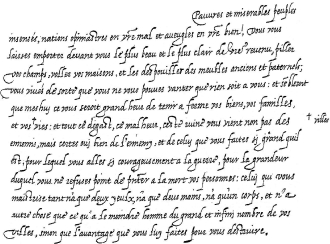 Pauures et miserables peuples
insensés, nations opiniastres en vr̃e mal et aueugles en vr̃e bien! vous vous
laisses emporter deuant vous le plus beau et le plus clair de vr̃e reuenu, piller
vos champs, voller vos maisons, et les despouiller des meubles anciens et paternels;
vous viues de sorte que vous ne vous pouues vanter que rien soit a vous: et sembleroit
que meshuy ce vous seroit grand heur de tenir a ferme vos biens, vos familles,
et vos † vies: et tout ce degast, ce malheur, ceste ruine vous vient non pas des
† villes
ennemis, mais certes oui bien de l'ennemy, et de celuy que vous faites si grand quil
est, pour lequel vous alles si courageusement a la guerre, pour la grandeur
duquel vous ne refuses point de a la mort vos personnes: celui qui vous
maistrise tant n'a que deux yeulx, n'a que deus mains, n'a qu'un corps, et n'a
autre chose que ce qu'a le moindre homme du grand et infini nombre de vos
villes, sinon que l'auantage que vous luy faites pour vous destruire.